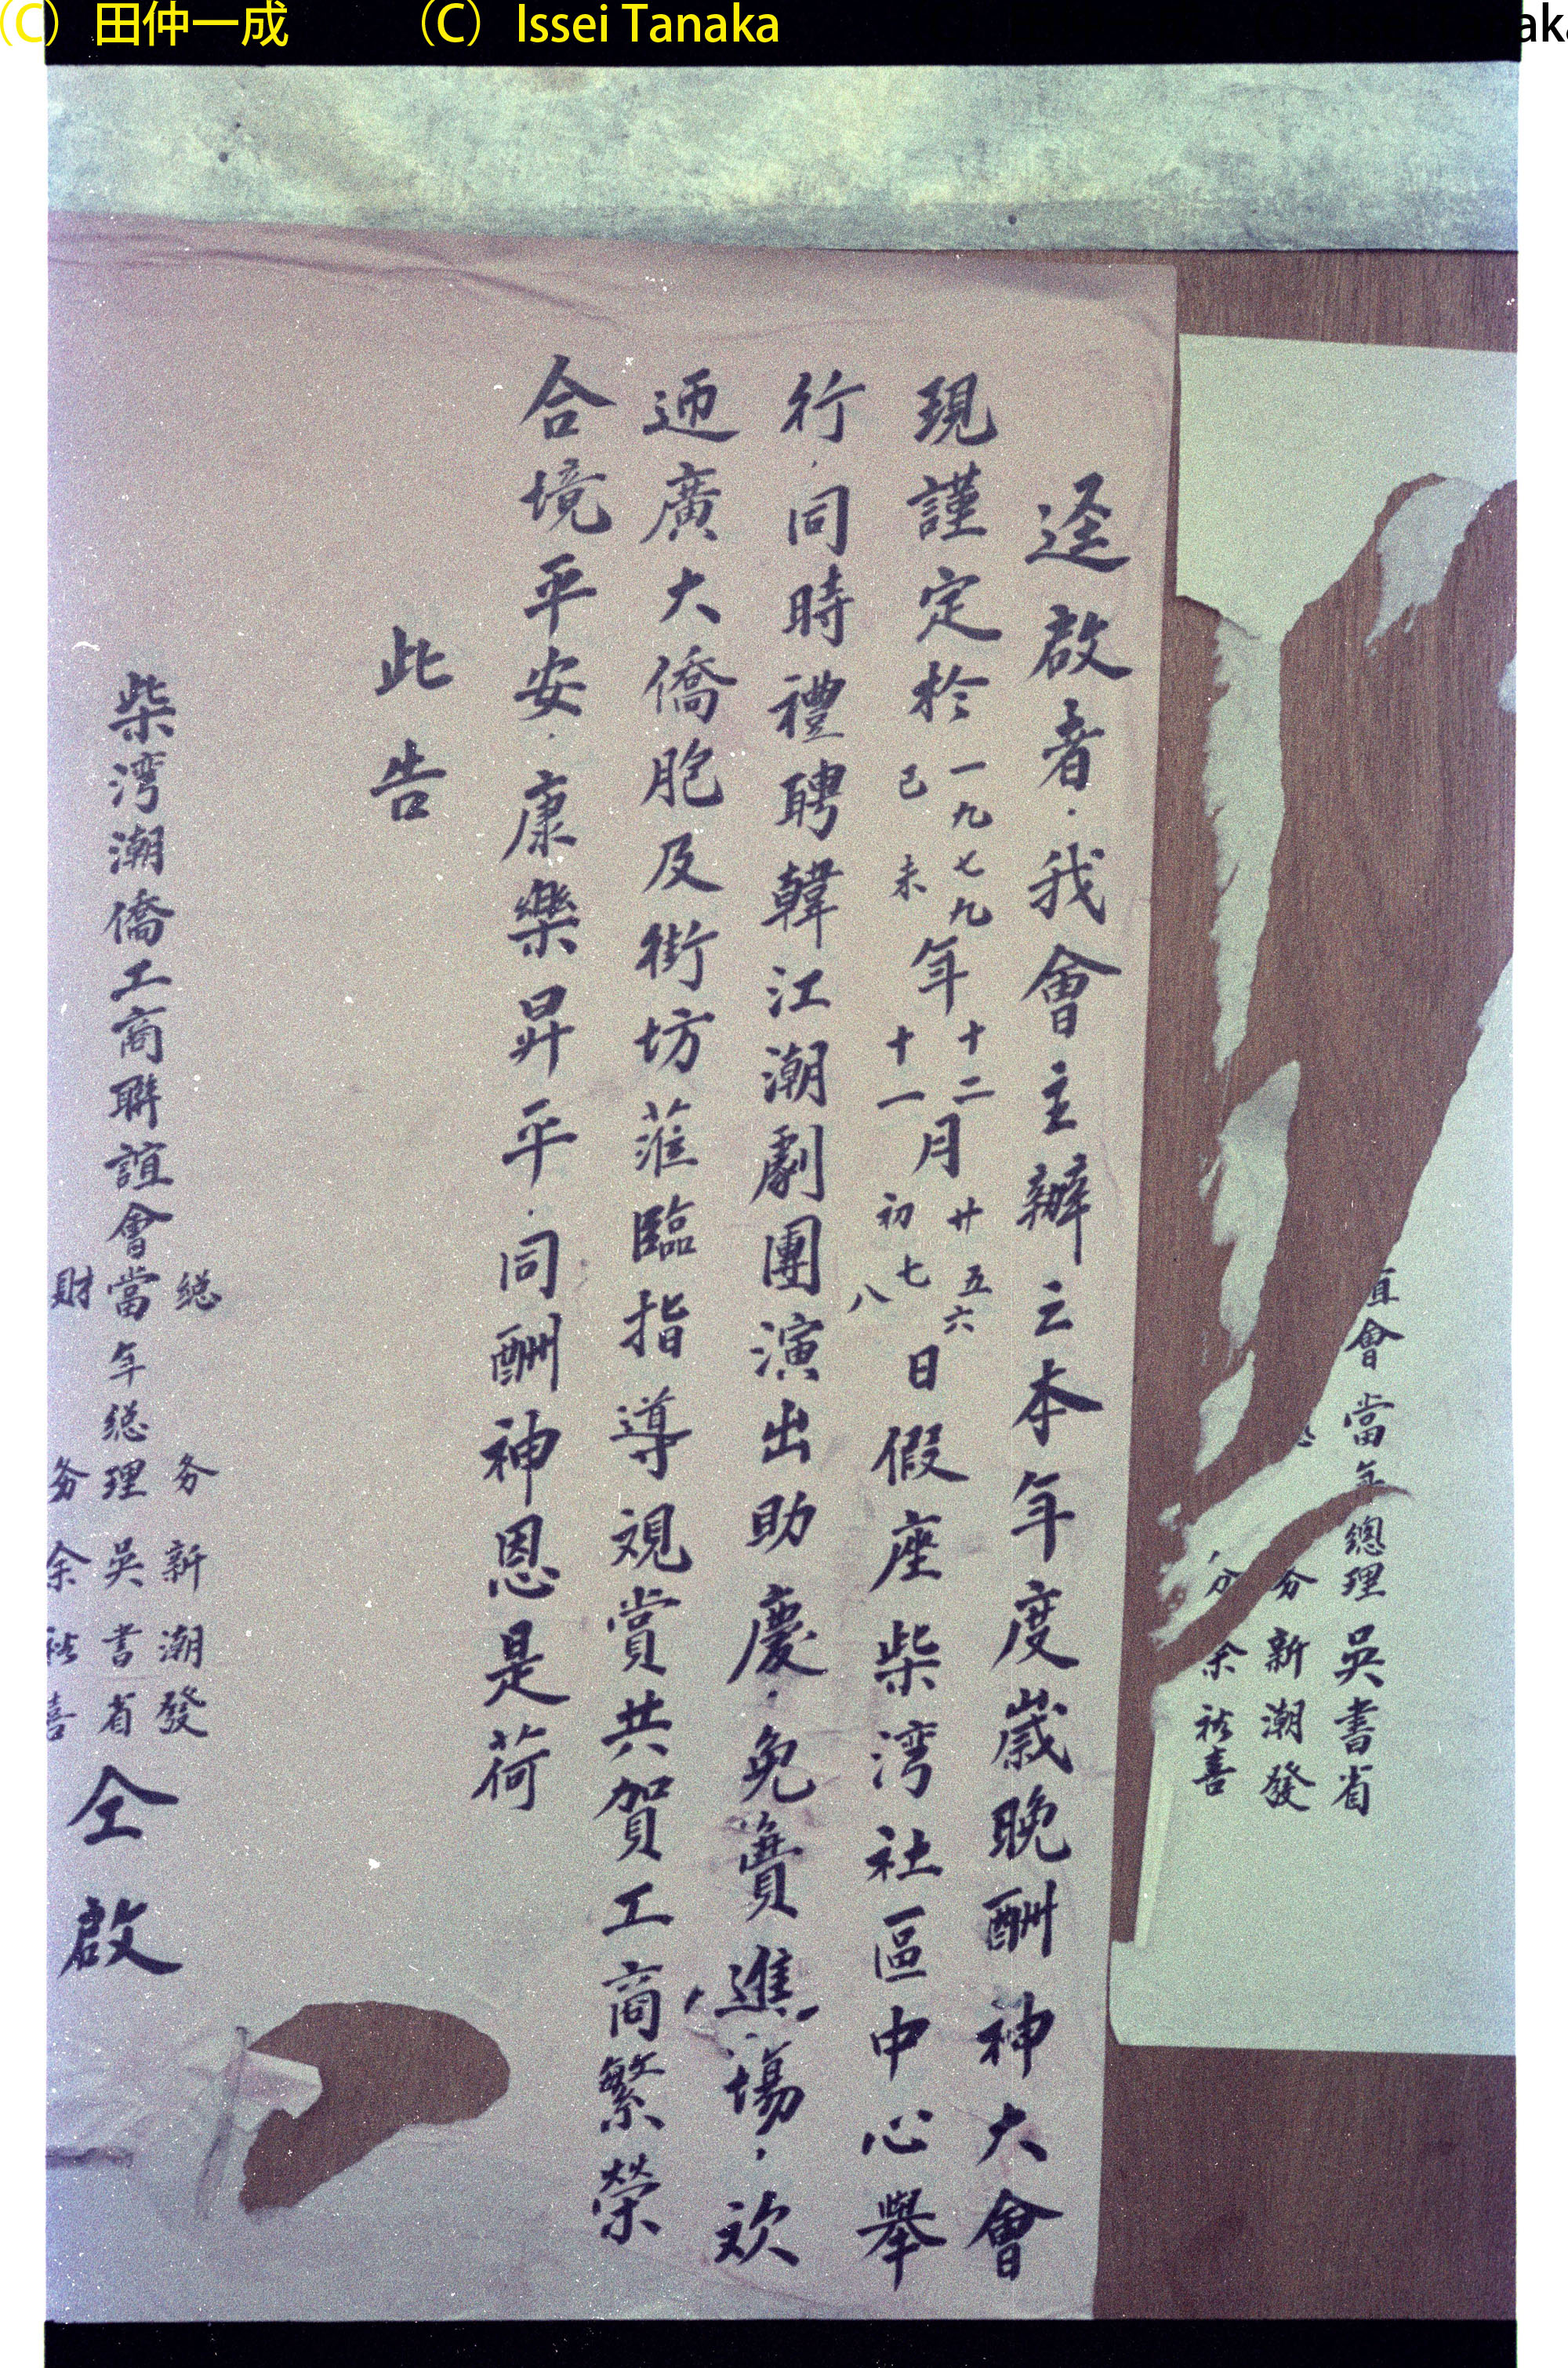 (C) 田仲一成 (C) Issei Tanaka
aka
會當年總理吳書省
务新潮發
余
喜
迳啟者．我會主辦之本年度歲晚酬神大會
現謹定於一九七九己未年十二十一月廿五六初七八日假座柴湾社區中心舉
行．同時禮聘韓江潮劇團演出助慶．免費進場．欢
迊廣大僑胞及街坊蒞臨指導覌賞共賀工商繁榮
合境平安．康樂昇平．同酬神恩是荷
此告
総务新潮發
柴湾潮僑工商聯誼會當年総理吳書省
財务余
喜
仝啟